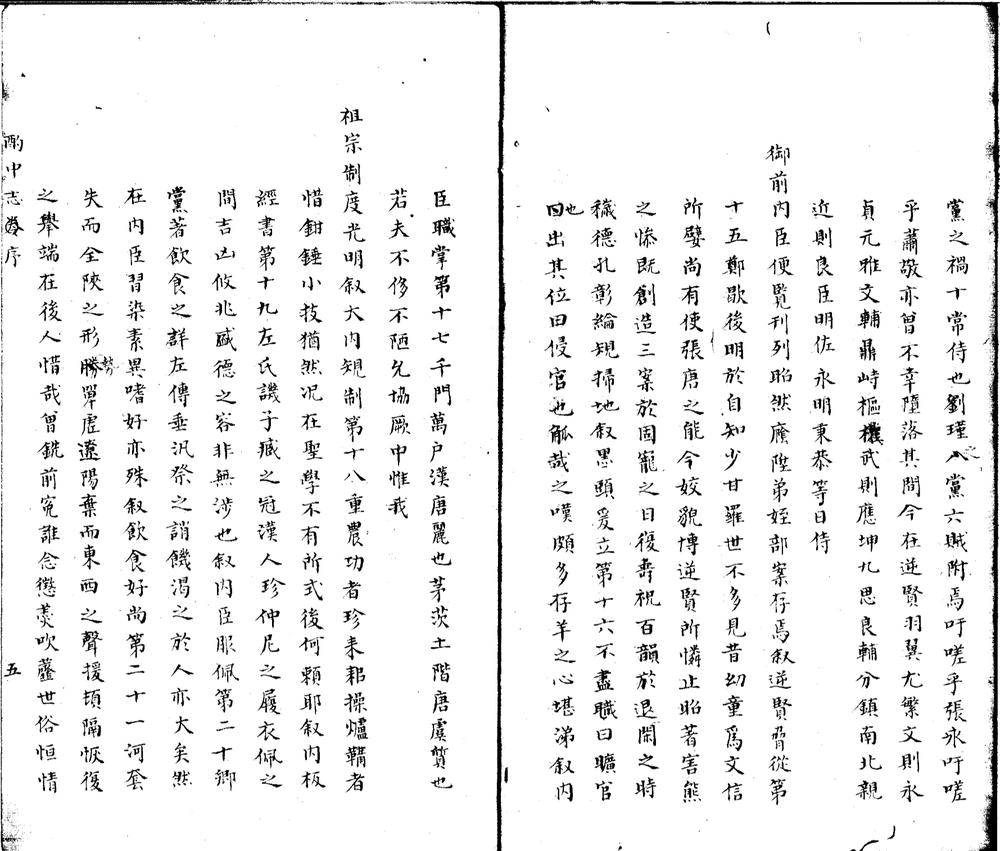 黨之禍十常侍也劉瑾八黨六賊附焉吁嗟乎張永吁嗟
乎蕭敬亦曾不幸墮落其間今在逆賢羽翼尤繁文則永
貞元雅文輔鼎峙樞機武則應坤九思良輔分鎮南北親
近則良臣明佐永明東恭等日侍
御前內臣便覽刊列昭然廕陞弟姪部案存焉叙逆賢脅從第
十五鄭歇後明於自知少甘羅世不多見昔幼童為文信
所嬖尚有使張唐之能今姣貌愽逆賢所憐止昭著害熊
之慘既創造三案於固寵之日復壽祝百韻於退閑之時
穢德孔彰綸規掃地叙愚頭爰立第十六不盡職曰曠官
也出其位曰侵官也觚哉之嘆頗多存羊之心堪涕叙內
臣職掌第十七千門萬户漢唐麗也茅茨土階唐虞質也
若夫不侈不陋允協厥中惟我
祖宗制度光明叙大內規制第十八重農功者珍耒耜操爐鞴者
惜鉗錘小技猶然况在聖學不有所式後何賴耶叙內板
經書第十九左氏譏子臧之冠漢人珍仲尼之履衣佩之
間吉凶攸兆盛德之容非無涉也叙內臣服佩第二十鄉
黨著飲食之群左傳垂汎祭之誚饑渴之於人亦大矣然
在內臣習染素異嗜好亦殊叙飲食好尚第二十一河套
失而全陝之形勝勢單虛遼陽棄而東西之聲援頓隔恢復
之舉端在後人惜哉曾銑前寃誰念懲羹吹虀世俗恒情
酌中志序
五